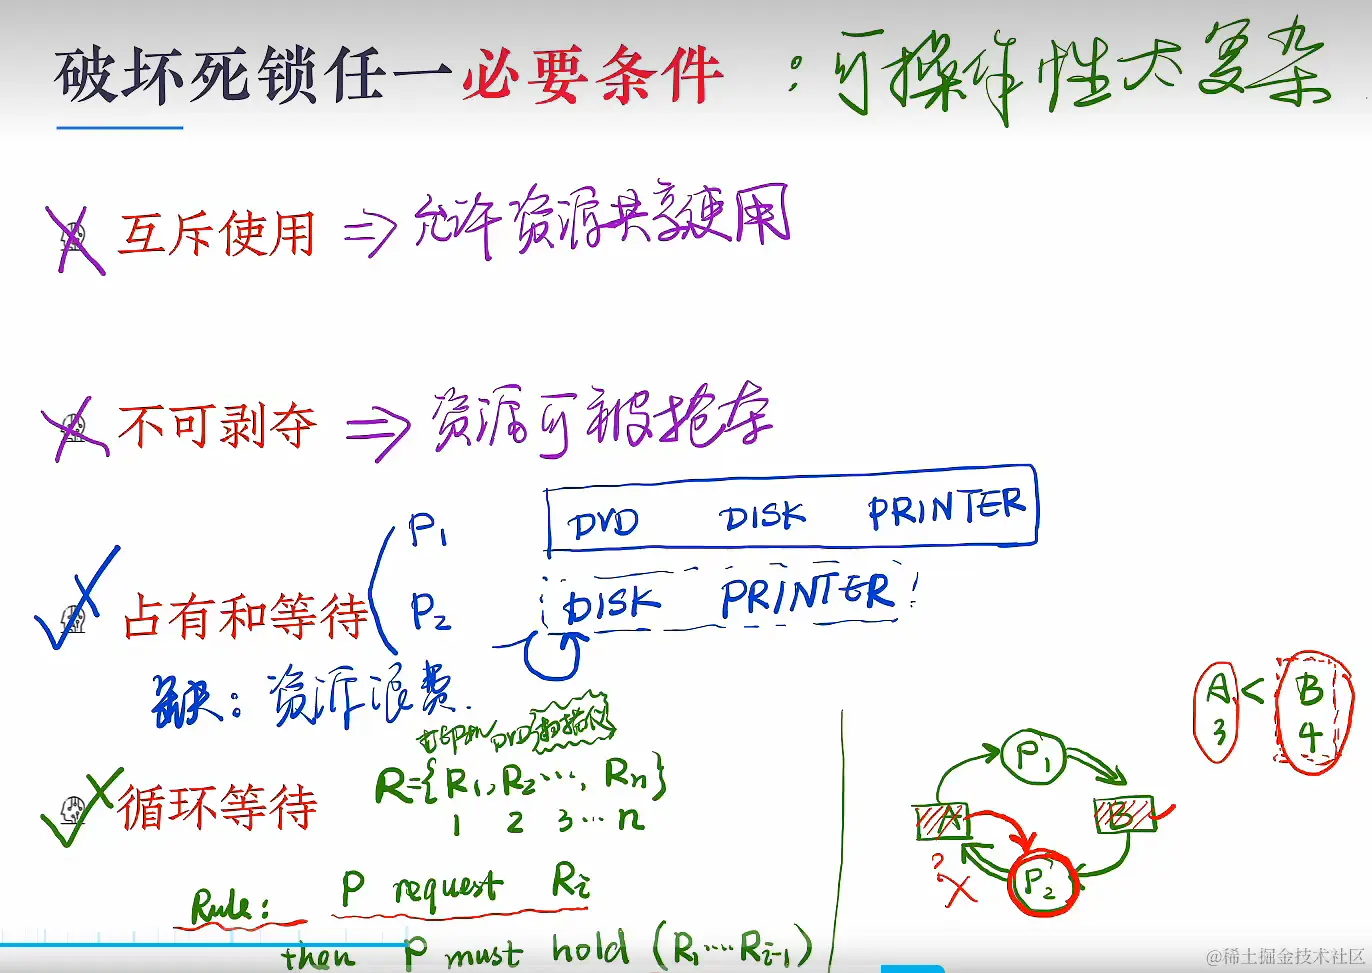 破坏死锁任一必要条件 : 可操作性大复杂
互斥使用 => 允许资源共享使用
不可剥夺 => 资源可被抢夺
P1 DVD DISK PRINTER
P2 DISK PRINTER
占有和等待
缺: 资源浪费.
打印机 DVD 扫描仪
R={R1,R2···, Rn}
1 2 3··· n
循环等待
Rule: P request Ri
then P must hold (R1····Ri-1)
A < B
3 4
P1
A B
? X
P2
@稀土掘金技术社区